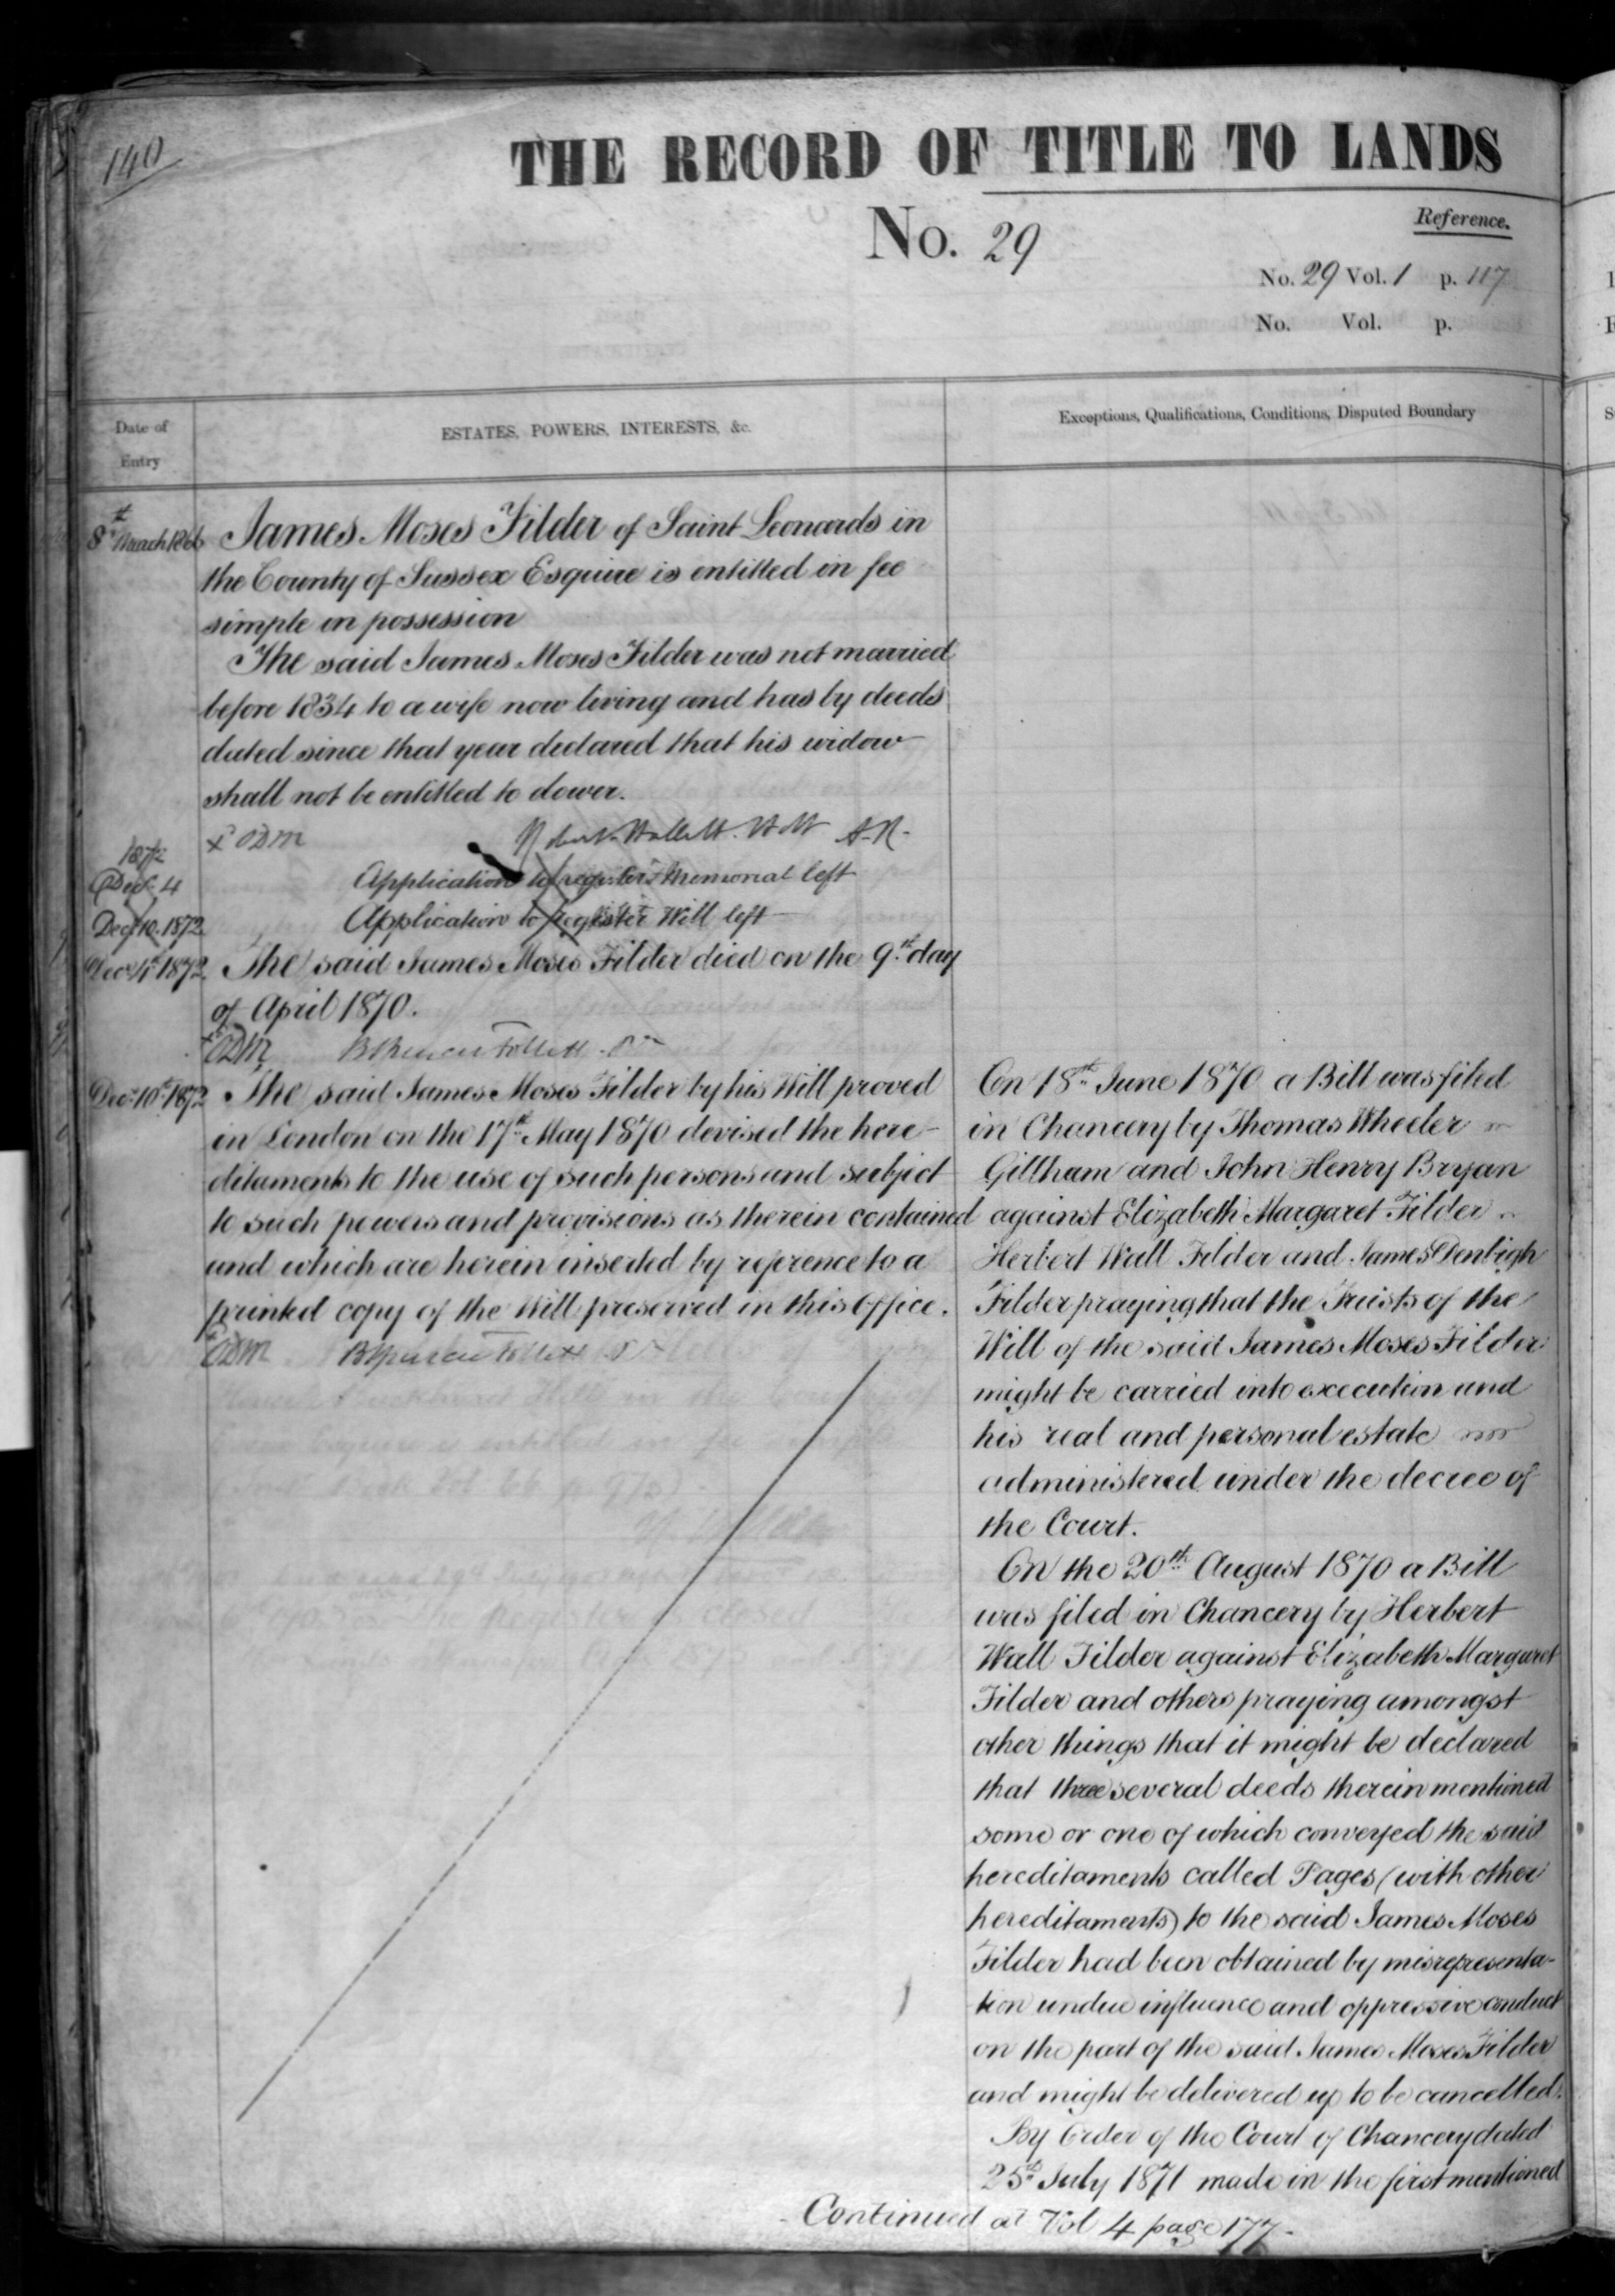 140
THE RECORD OF TITLE TO LANDS
No. 29
Reference.
No. 29 Vol. 1 p. 117
No. Vol. p.
Date of Entry
ESTATES, POWERS, INTERESTS, &c.
Exceptions, Qualifications, Conditions, Disputed Boundary
8th March 1866
James Moses Filder of Saint Leonards in
the County of Sussex Esquire is entitled in fee
simple in possession
The said James Moses Filder was not married
before 1834 to a wife now living and has by deeds
dated since that year declared that his widow
shall not be entitled to dower.
x ODM Robert Hallett Holt A.R.
1872
Decr. 4
Application to register Memorial left
Decr 10. 1872
Application to register Will left
Decr 4th 1872
The said James Moses Filder died on the 9th day
of April 1870.
x ODM Follett
Decr 10th 1872
The said James Moses Filder by his Will proved
in London on the 17th May 1870 devised the here-
ditaments to the use of such persons and subject
to such powers and provisions as therein contained
and which are herein inserted by reference to a
printed copy of the Will preserved in this Office.
x ODM Follett
On 18th June 1870 a Bill was filed
in Chancery by Thomas Wheeler
Gillham and John Henry Bryan
against Elizabeth Margaret Filder
Herbert Wall Filder and James Denbigh
Filder praying that the Trusts of the
Will of the said James Moses Filder
might be carried into execution and
his real and personal estate
administered under the decree of
the Court.
On the 20th August 1870 a Bill
was filed in Chancery by Herbert
Wall Filder against Elizabeth Margaret
Filder and others praying amongst
other things that it might be declared
that three several deeds therein mentioned
some or one of which conveyed the said
hereditaments called Pages (with other
hereditaments) to the said James Moses
Filder had been obtained by misrepresenta-
tion undue influence and oppressive conduct
on the part of the said James Moses Filder
and might be delivered up to be cancelled.
By Order of the Court of Chancery dated
25th July 1871 made in the first mentioned
Continued at Vol 4 page 177.